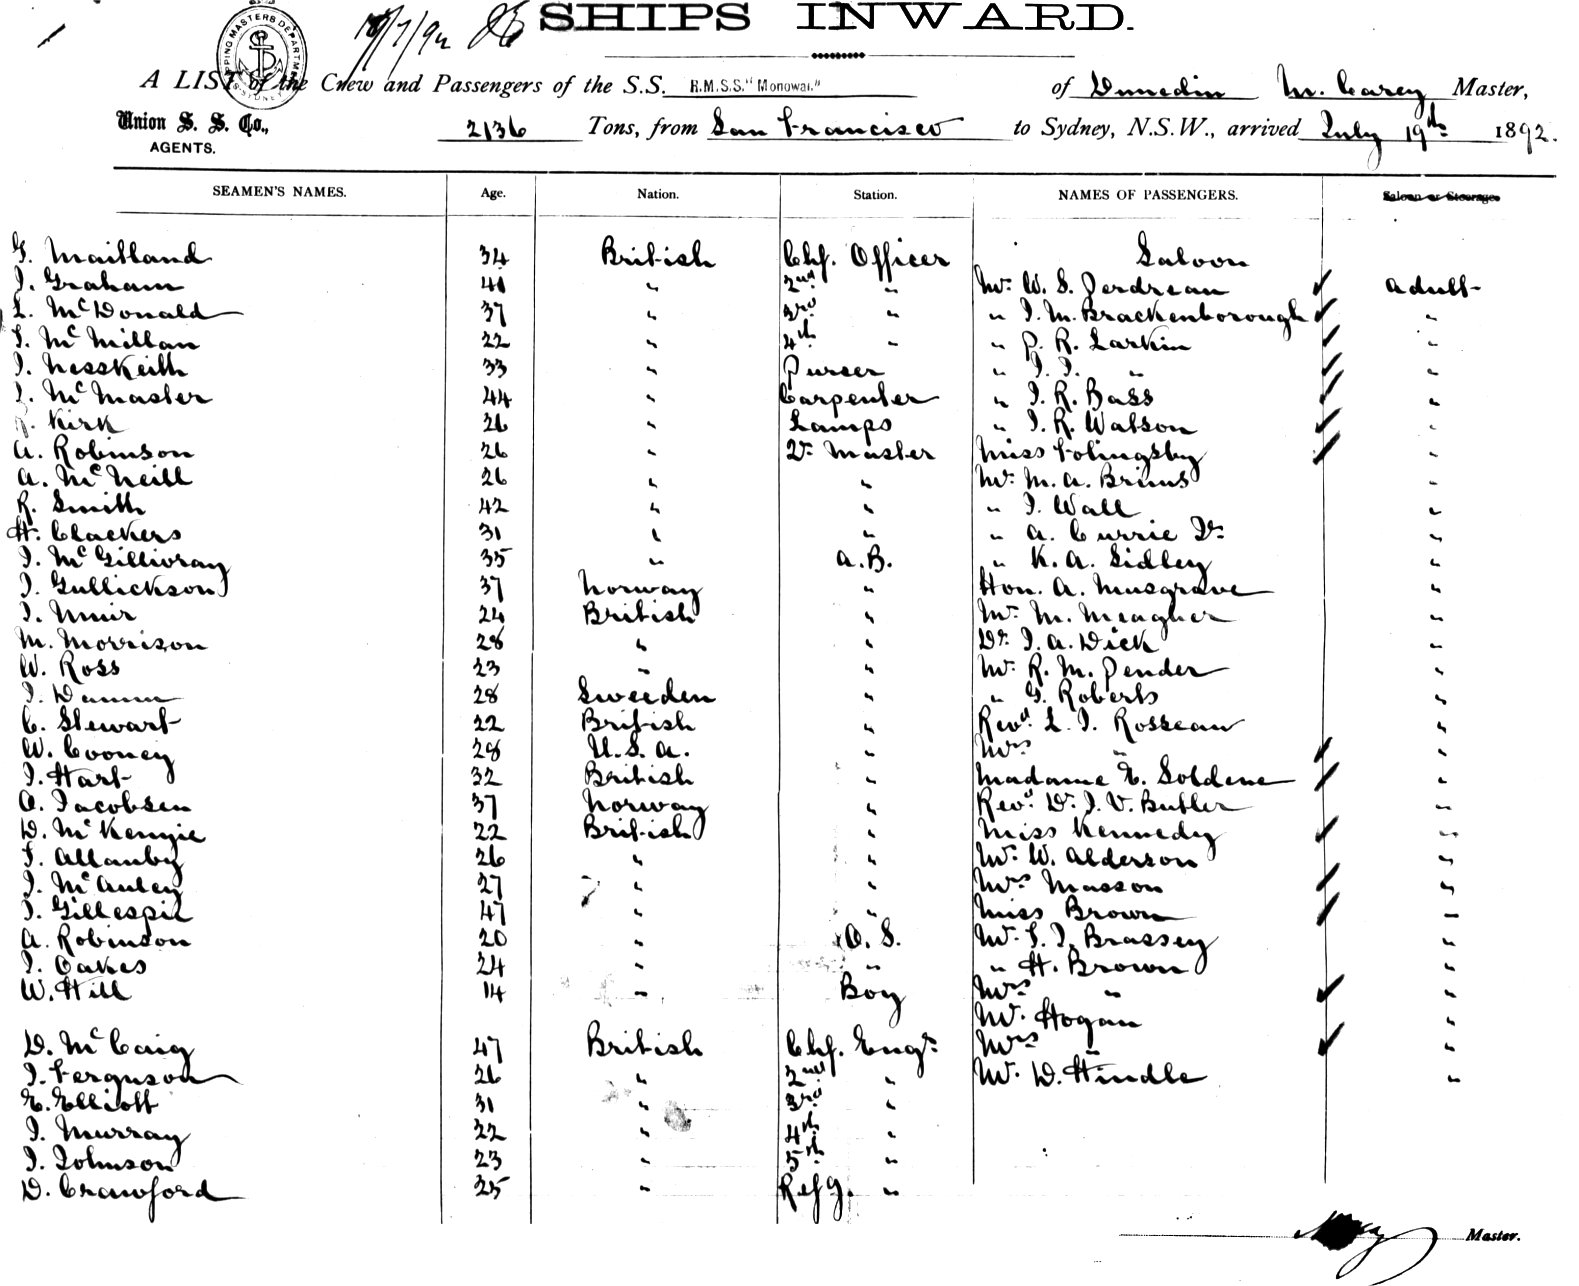 18/7/92
SHIPS INWARD.
SHIPPING MASTERS DEPARTMENT SYDNEY
A LIST of the Crew and Passengers of the S.S. R.M.S.S. "Monowai." of Dunedin M. Carey Master,
Union S. S. Co., AGENTS. 2136 Tons, from San Francisco to Sydney, N.S.W., arrived July 19th 1892.
SEAMEN'S NAMES. Age. Nation. Station. NAMES OF PASSENGERS. Saloon or Steerage
G. Maitland 34 British Chf. Officer Saloon
J. Graham 41 " 2nd " Mr. W. S. Perdreau Adult
L. McDonald 37 " 3rd " " J. M. Brackenborough "
J. McMillan 22 " 4th " " P. R. Larkin "
J. NessKeith 33 " Purser " J. J. " "
J. McMaster 44 " Carpenter " J. R. Bass "
Kirk 26 " Lamps " J. R. Watson "
A. Robinson 26 " Qr. Master Miss Folingsby "
A. McNeill 26 " " Mr. M. A. Bruns "
R. Smith 42 " " " J. Wall "
H. Clackers 31 " " " A. Currie Jr. "
J. McGillivray 35 " A.B. " K. A. Sidley "
J. Gullickson 37 Norway " Hon. A. Musgrave "
J. Muir 24 British " Mr. M. Meagher "
M. Morrison 28 " " Dr. J. A. Dick "
W. Ross 23 " " Mr. R. M. Pender "
J. Damm 28 Sweeden " " G. Roberts "
C. Stewart 22 British " Revd. L. J. Rosseau "
W. Cooney 28 U.S.A. " Mrs " "
J. Hart 32 British " Madame E. Soldene "
O. Jacobsen 37 Norway " Revd. Dr. J. V. Butler "
D. McKenzie 22 British " Miss Kennedy "
J. Allanby 26 " " Mr. W. Alderson "
J. McAuley 27 " " Mrs Masson "
J. Gillespie 47 " " Miss Brown "
A. Robinson 20 " O. S. Mr. S. J. Brassey "
J. Oakes 24 " " " H. Brown "
W. Hill 14 " Boy Mrs " "
Mr. Hogan "
D. McCaig 47 British Chf. Engr. Mrs " "
J. Ferguson 26 " 2nd " Mr. D. Hindle "
E. Elliott 31 " 3rd "
J. Murray 22 " 4th "
J. Johnson 23 " 5th "
D. Crawford 25 " Refg. "
Master.